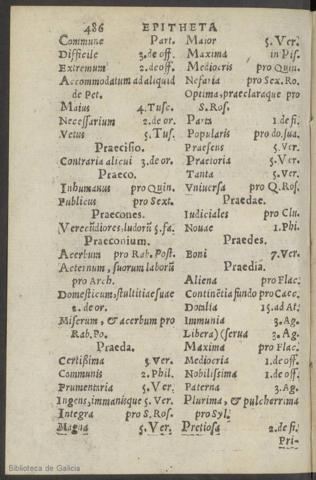 486 EPITHETA
Commune Part.
Difficile 3.de off.
Extremum 2.de off.
Accommodatum ad aliquid
de Pet.
Maius 4.Tusc.
Necessarium 2.de or.
Vetus 5.Tus.
Praecisio.
Contraria alicui 3.de or.
Praeco.
Inhumanus pro Quin.
Publicus pro Sext.
Praecones.
Verecūdiores, ludorū 5.fa.
Praeconium.
Acerbum pro Rab. Post.
Aeternum, suorum laborū
pro Arch.
Domesticum, stultitiae suae
2. de or.
Miserum, & acerbum pro
Rab. Po.
Praeda.
Certissima 5.Ver.
Communis 2.Phil.
Frumentaria 5.Ver.
Ingens, immanisque 5.Ver.
Integra pro S.Ros.
Magna 5. Ver.
Maior 5.Ver.
Maxima in Pis.
Mediocris pro Quin.
Nefaria pro Sex.Ro.
Optima, praeclaraque pro
S.Ros.
Parta 1.de fi.
Popularis pro do.sua.
Praesens 5.Ver.
Praetoria 5.Ver.
Tanta 5.Ver.
Vniuersa pro Q.Ros.
Praedae.
Iudiciales pro Clu.
Nouae 1.Phi.
Praedes.
Boni 7.Ver.
Praedia.
Aliena pro Flac.
Continētia fundo pro Caec.
Dotalia 15.ad At.
Immunia 3.Ag.
Libera) (serua 3.Ag.
Maxima pro Flac.
Mediocria 1.de off.
Nobilissima 1.de off.
Paterna 3.Ag.
Plurima, & pulcherrima
pro Syl.
Pretiosa 2.de fi.
Pri-
Biblioteca de Galicia